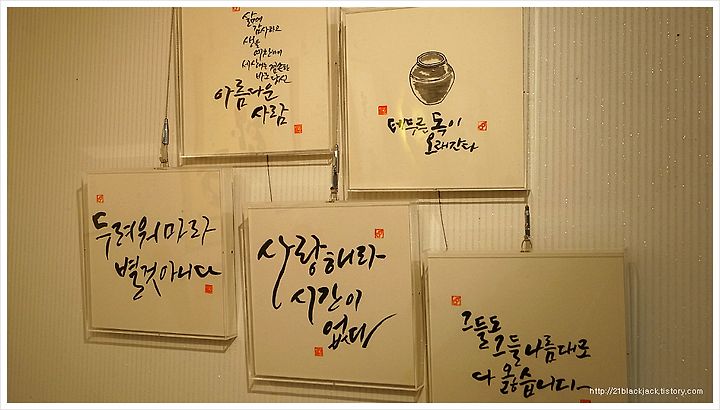 삶에
감사하고
생을
예찬하며
세상에는 겸손한
바로 당신
아름다운
사람
테두른 독이
오래간다
두려워마라
별것아니다
사랑해라
시간이
없다
그들도
그들 나름대로
다 옳습니다
http://21blackjack.tistory.com/